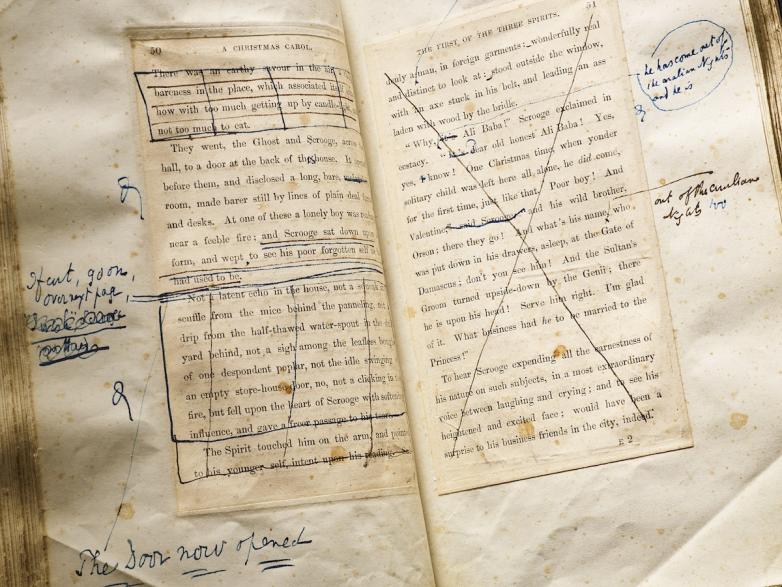 50 A CHRISTMAS CAROL.
There was an earthy savour in the
bareness in the place, which associated
how with too much getting up by
not too much to eat.
They went, the Ghost and Scrooge,
hall, to a door at the back of the house. It
before them, and disclosed a long, bare,
room, made barer still by lines of plain deal
and desks. At one of these a lonely boy was
near a feeble fire; and Scrooge sat down
form, and wept to see his poor forgotten self
had used to be.
Not a latent echo in the house, not a
scuffle from the mice behind the panneling, not
drip from the half-thawed water-spout in the
yard behind, not a sigh among the leafless
of one despondent poplar, not the idle swinging
an empty store-house door, no, not a clicking in
fire, but fell upon the heart of Scrooge with
influence, and gave a freer passage to his tears.
The Spirit touched him on the arm, and
to his younger self, intent upon his reading.
If cut, go on,
over next page,
The Door now opened
THE FIRST OF THE THREE SPIRITS. 51
a man, in foreign garments: wonderfully real
and distinct to look at: stood outside the window,
with an axe stuck in his belt, and leading an ass
laden with wood by the bridle.
"Why, Ali Baba!" Scrooge exclaimed in
ecstacy. dear old honest Ali Baba! Yes,
yes, I know! One Christmas time, when yonder
solitary child was left here all alone, he did come,
for the first time, just like that. Poor boy! And
Valentine," said Scrooge, "and his wild brother,
Orson; there they go! And what's his name, who
was put down in his drawers, asleep, at the Gate of
Damascus; don't you see him! And the Sultan's
Groom turned upside-down by the Genii; there
he is upon his head! Serve him right. I'm glad
of it. What business had he to be married to the
Princess!"
To hear Scrooge expending all the earnestness of
his nature on such subjects, in a most extraordinary
voice between laughing and crying; and to see his
heightened and excited face; would have been a
surprise to his business friends in the city, indeed.
E 2
he has come out of
the arabian Nights
and he is
out of the arabian
Nights too